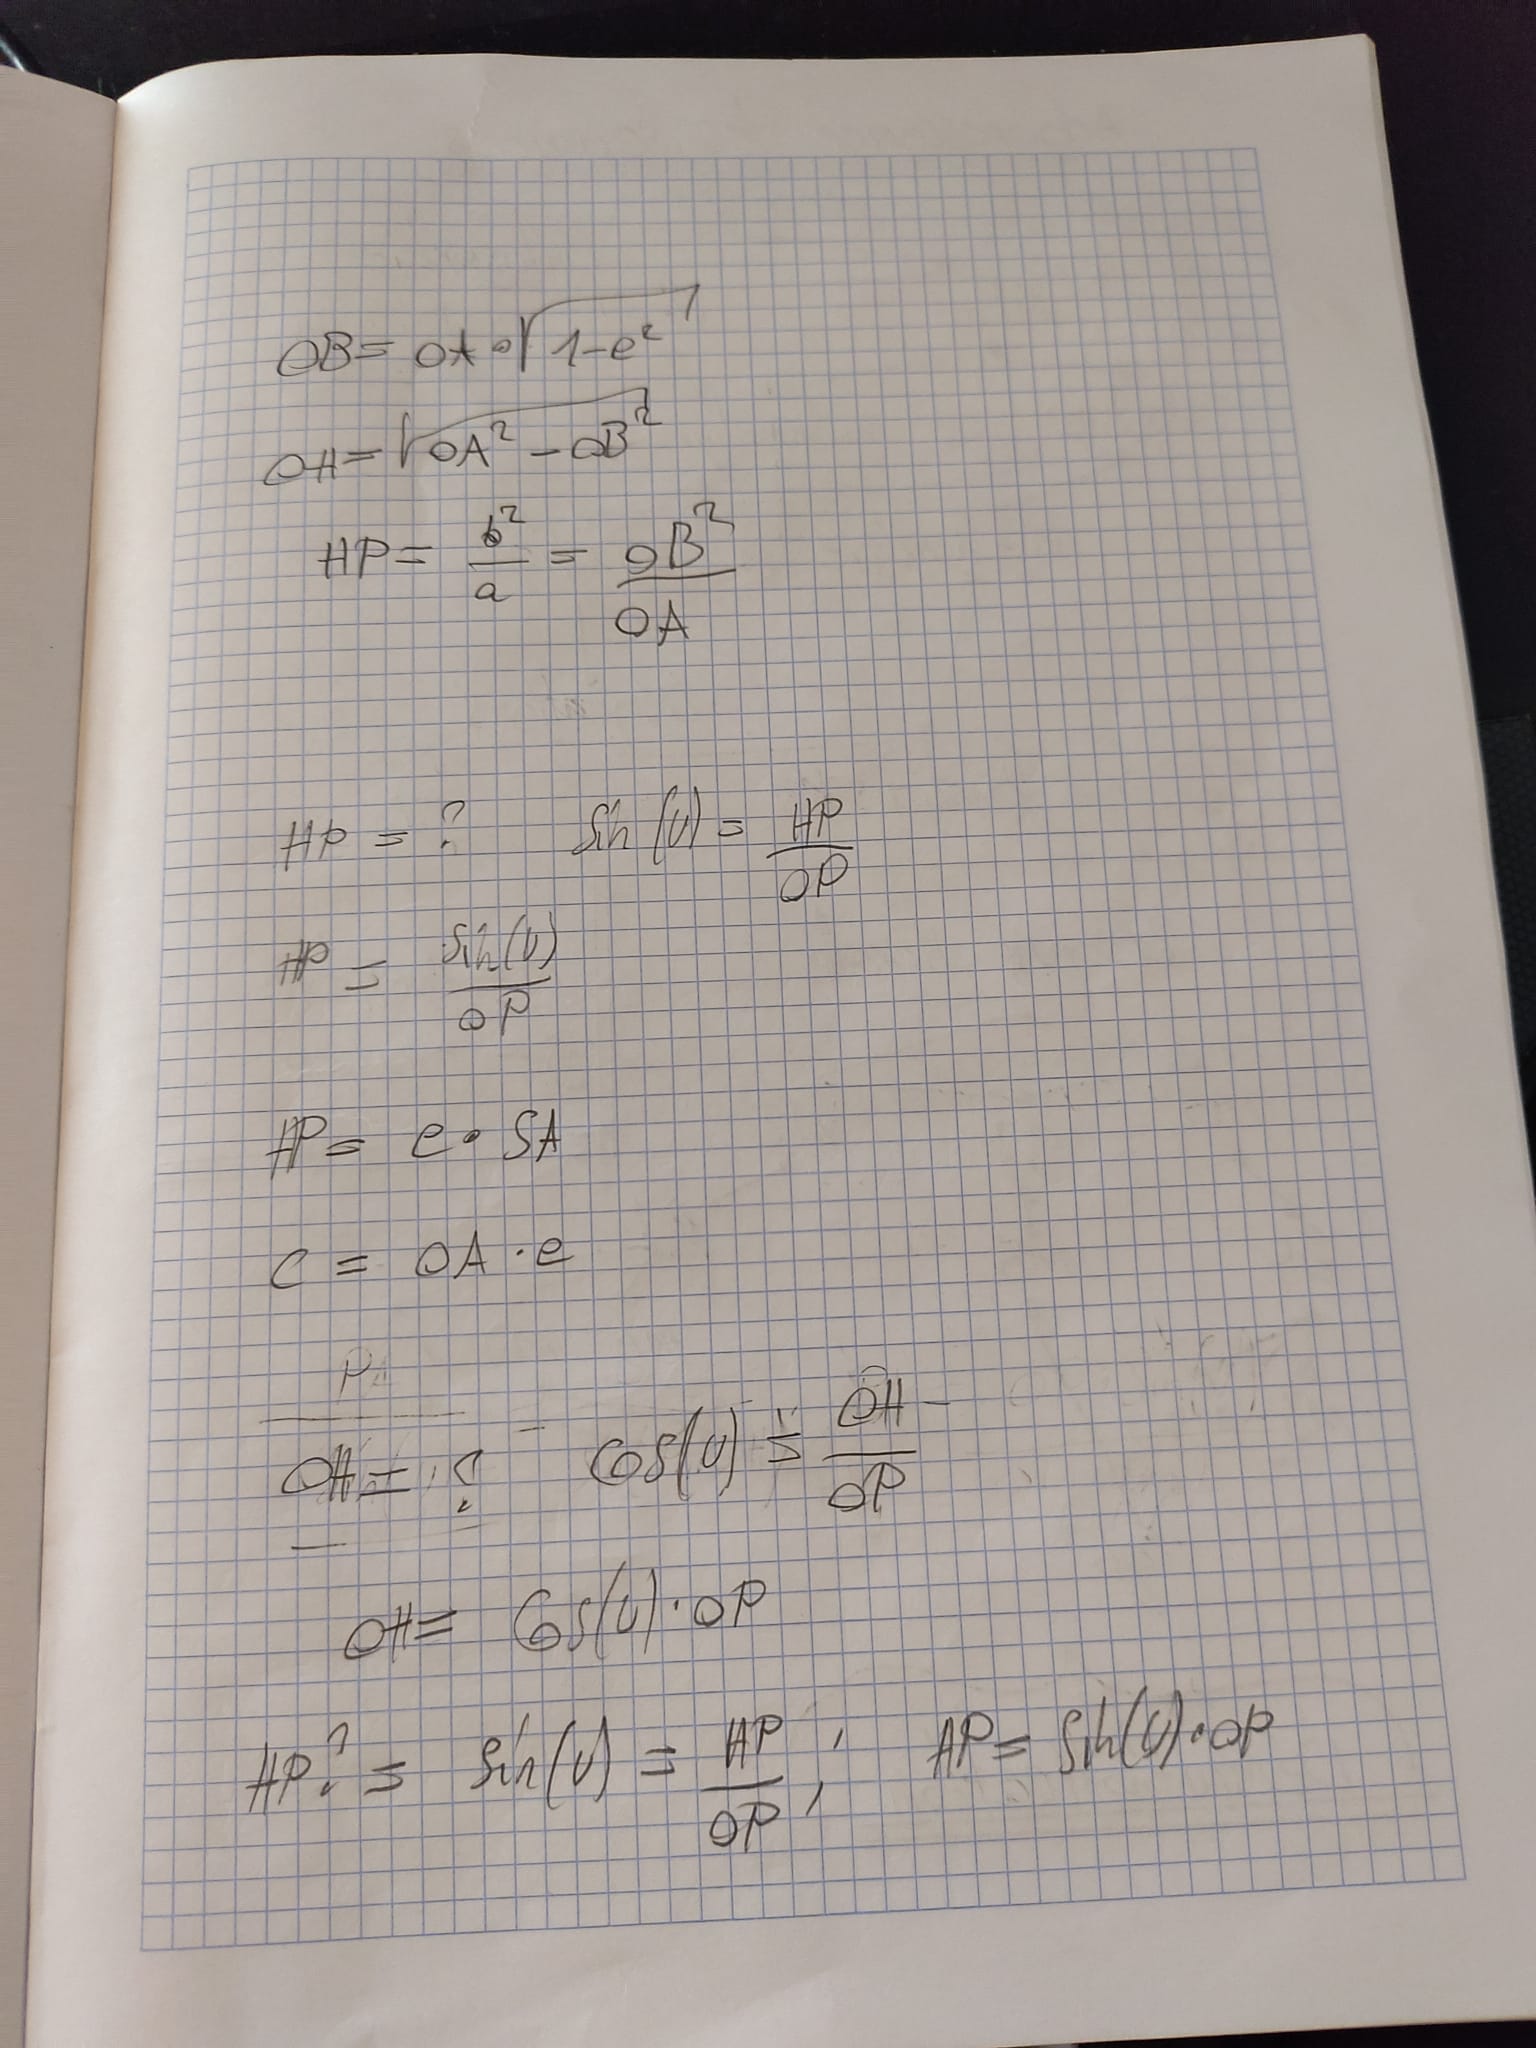 OB = OA • √1-e²
OH = √OA² - OB²
HP = b²/a = OB²/OA
HP = ? Sin(υ) = HP/OP
HP = Sin(υ)/OP
HP = e • SA
C = OA · e
OH = ? Cos(υ) = OH/OP
OH = Cos(υ) · OP
HP? = Sin(υ) = HP/OP ; HP = Sin(υ) • OP